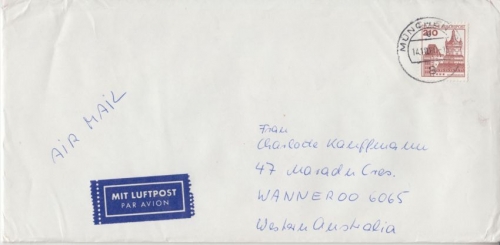 MÜNCHEN
210
AIR MAIL
MIT LUFTPOST
PAR AVION
Frau
Charlotte Kauffmann
47 Cres.
WANNEROO 6065
Western Australia